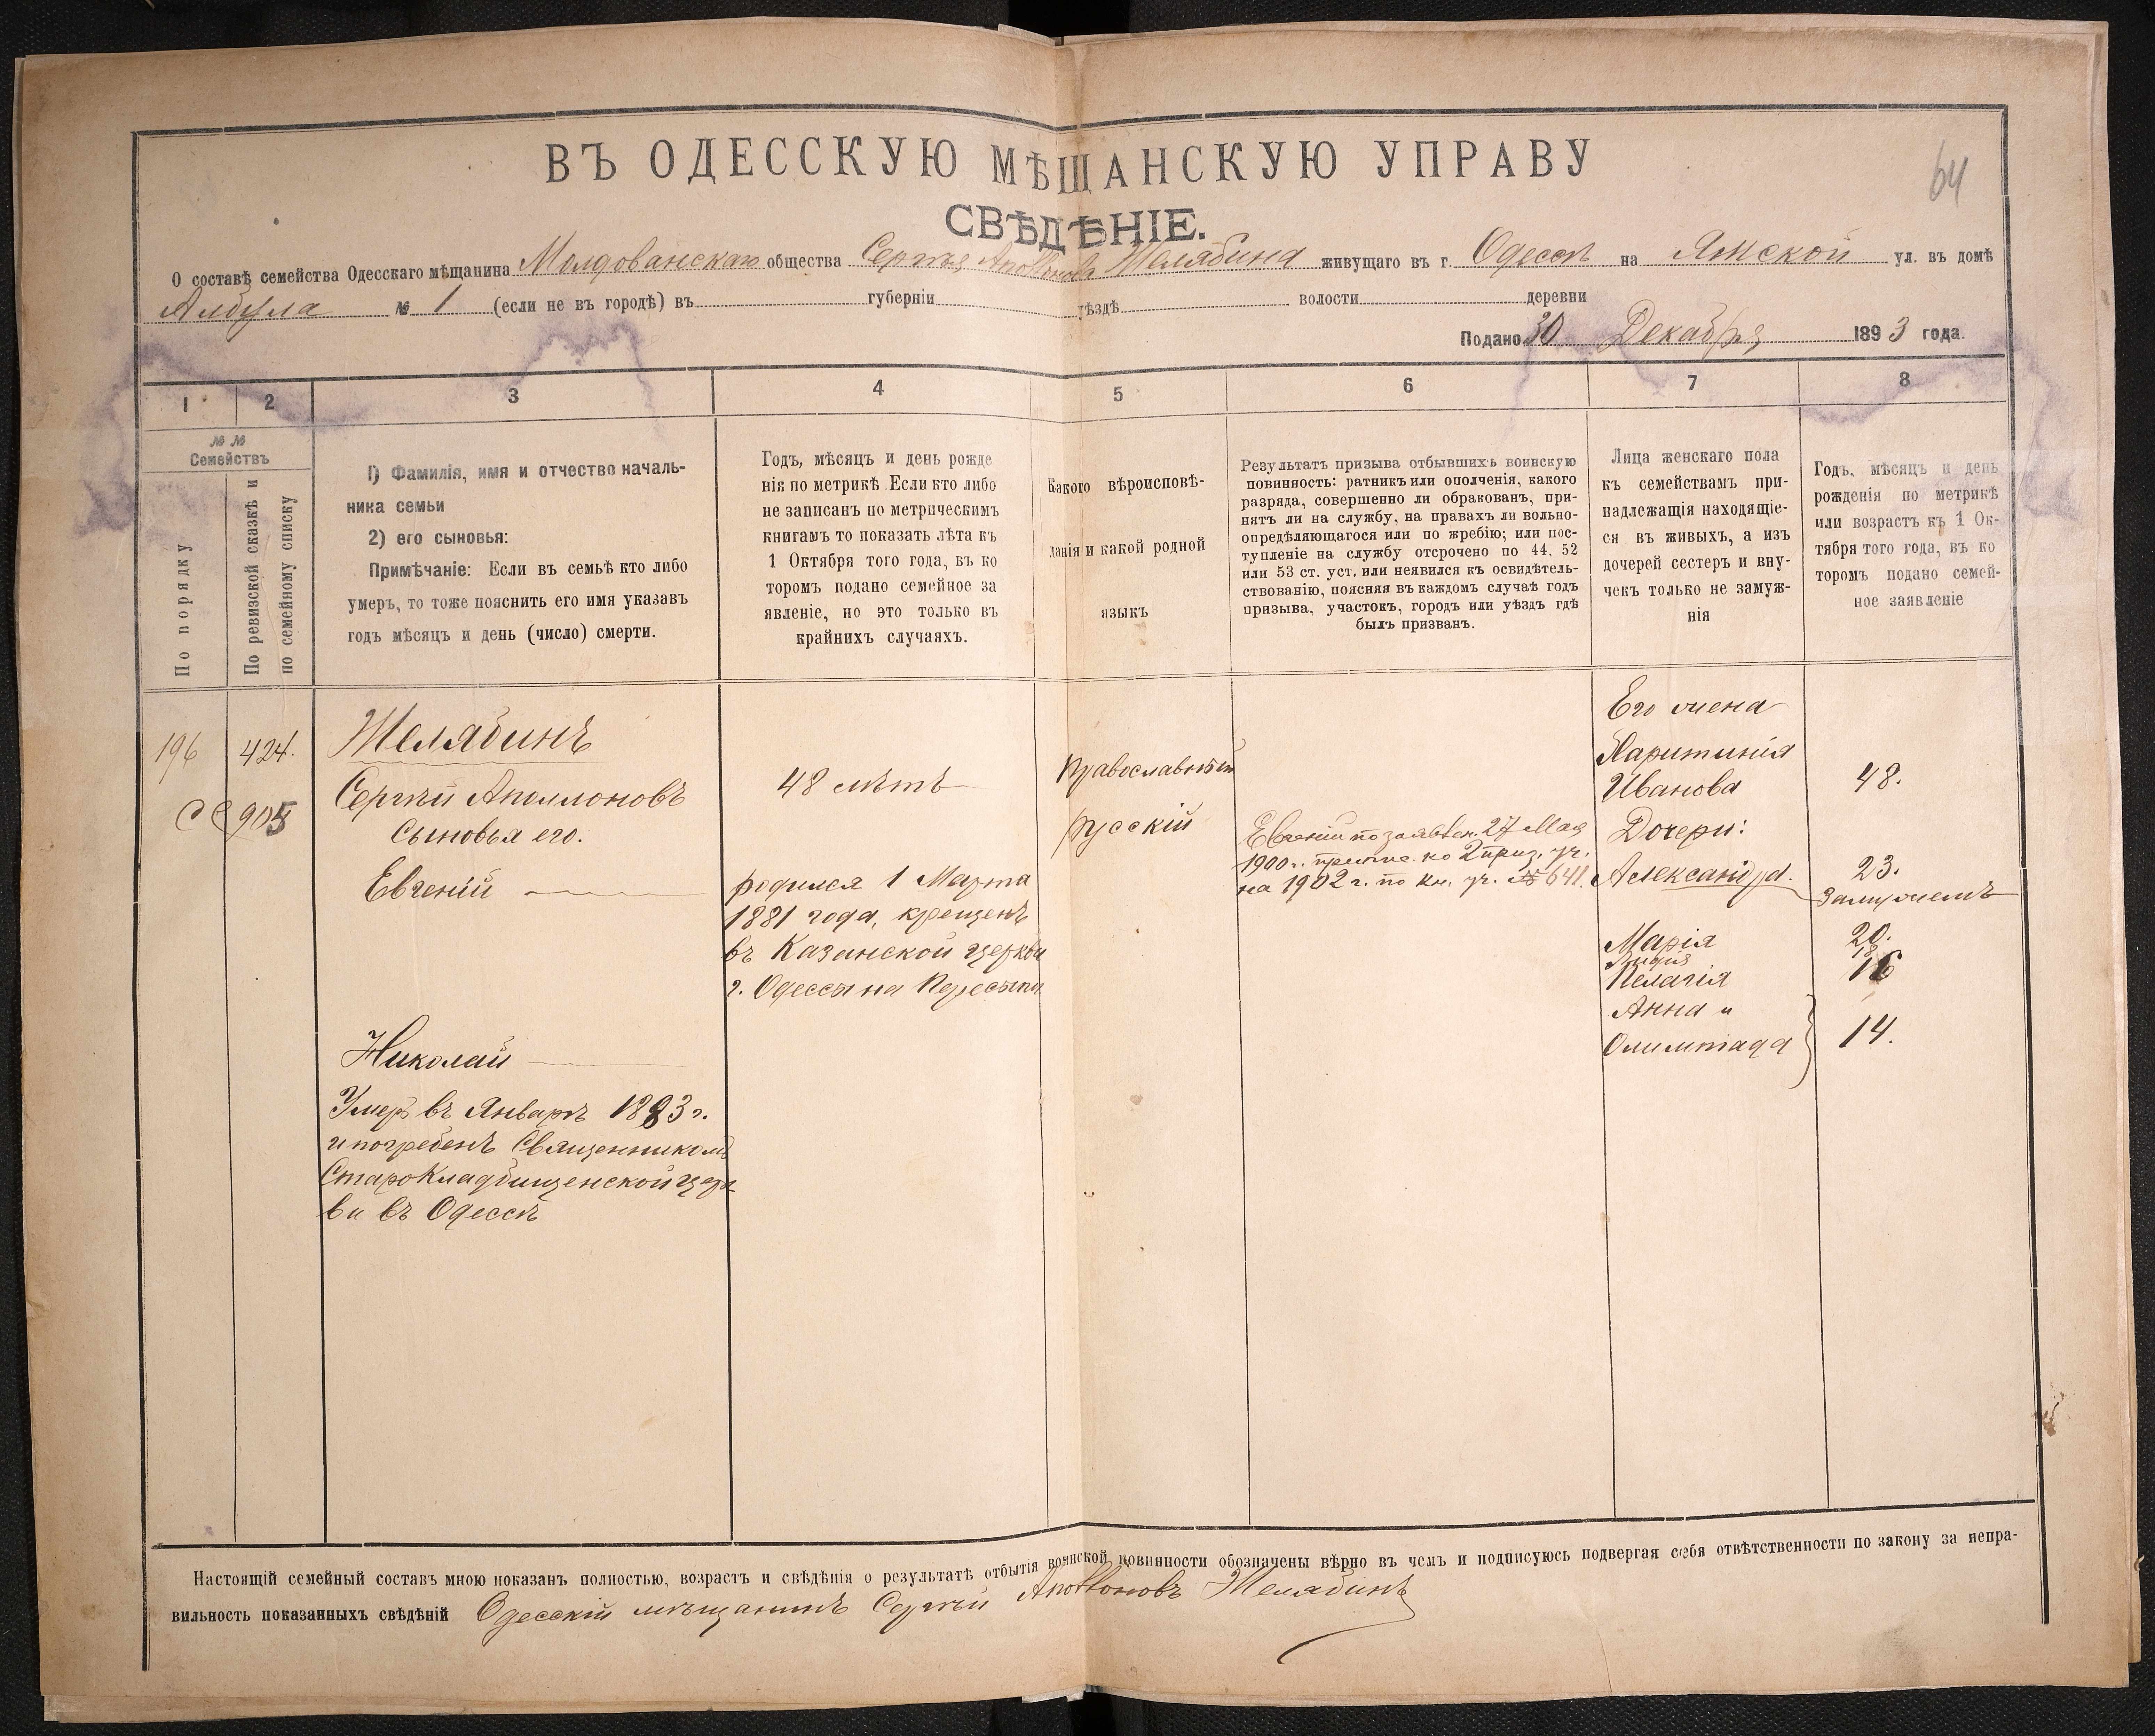 64
ВЪ ОДЕССКУЮ МѢЩАНСКУЮ УПРАВУ
СВѢДѢНІЕ.
О составѣ семейства Одесскаго мѣщанина Молдованскаго общества Сергѣя Аполлонова Желябина живущаго въ г. Одессѣ на Ямской ул. въ домѣ
Албула № 1 (если не въ городѣ) въ губерніи уѣздѣ волости деревни
Подано 30 Декабря 1893 года.
1 2 3 4 5 6 7 8
№№
Семействъ
По порядку
По ревизской сказкѣ и
по семейному списку
1) Фамилія, имя и отчество началь-
ника семьи
2) его сыновья:
Примѣчаніе: Если въ семьѣ кто либо
умеръ, то тоже пояснить его имя указавъ
годъ мѣсяцъ и день (число) смерти.
Годъ, мѣсяцъ и день рожде
нія по метрикѣ .Если кто либо
не записанъ по метрическимъ
книгамъ то показать лѣта къ
1 Октября того года, въ ко
торомъ подано семейное за
явленіе, но это только въ
крайнихъ случаяхъ.
Какого вѣроисповѣ-
данія и какой родной
языкъ
Результатъ призыва отбывшихъ воинскую
повинность: ратникъ или ополченія, какого
разряда, совершенно ли обракованъ, при-
нятъ ли на службу, на правахъ ли вольно-
опредѣляющагося или по жребію; или пос-
тупленіе на службу отсрочено по 44, 52
или 53 ст. уст. или неявился къ освидѣтель-
ствованію, поясняя въ каждомъ случаѣ годъ
призыва, участокъ, городъ или уѣздъ гдѣ
былъ призванъ.
Лица женскаго пола
къ семействамъ при-
надлежащія находящіе-
ся въ живыхъ, а изъ
дочерей сестеръ и вну-
чекъ только не замуж-
нія
Годъ, мѣсяцъ и день
рожденія по метрикѣ
или возрастъ къ 1 Ок-
тября того года, въ ко
торомъ подано семей-
ное заявленіе
196
424.
905
Желябинъ
Сергѣй Аполлоновъ
Сыновья его.
Евгеній
Николай
Умеръ въ Январѣ 1883 г.
и погребенъ Священникомъ
Старокладбищенской церк
ви въ Одессѣ
48 лѣтъ
родился 1 Марта
1881 года, крещенъ
въ Казанской церкви
г. Одессы на Пересыпи
Православный
русскій
Евгеній по заявлен. 27 Мая
1900 г. ко 2 приз. уч.
на 1902 г. по кн. уч. № 641.
Его жена
Харитинія
Иванова
48.
Дочери:
Александра.
23.
Замужемъ
Марія
20.
Лидія
18
Пелагія
16
Анна и
Олимпіада
14.
Настоящій семейный составъ мною показанъ полностью, возрастъ и свѣдѣнія о результатѣ отбытія воинской повинности обозначены вѣрно въ чемъ и подписуюсь подвергая себя отвѣтственности по закону за непра-
вильность показанныхъ свѣдѣній Одесскій мѣщанинъ Сергѣй Аполлоновъ Желябинъ